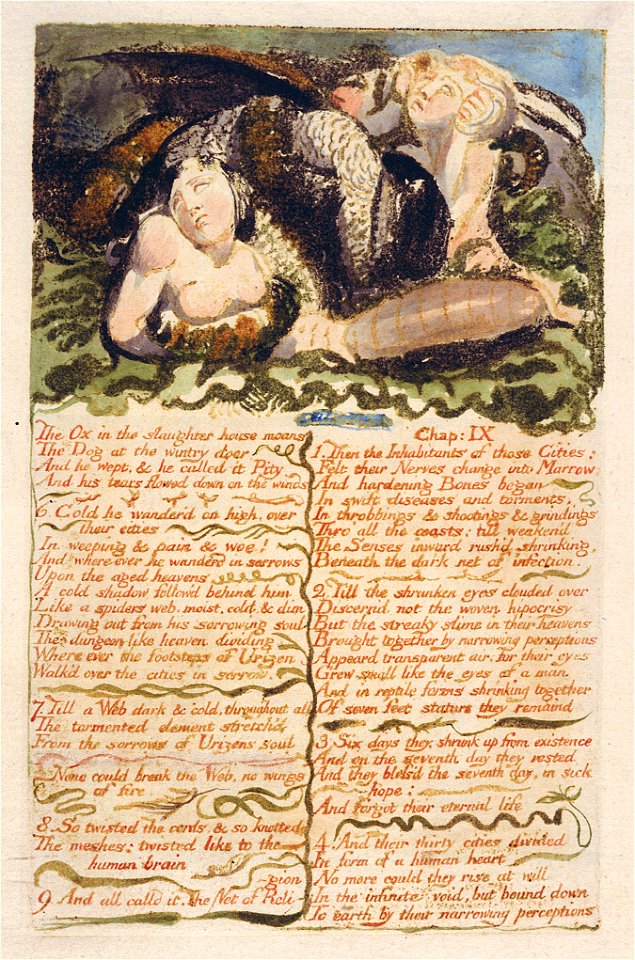 The Ox in the slaughter house moans
The Dog at the wintry door
And he wept, & he called it Pity
And his tears flowed down on the winds
6. Cold he wander'd on high, over
their cities
In weeping & pain & woe!
And where-ever he wander'd in sorrows
Upon the aged heavens
A cold shadow follow'd behind him
Like a spiders web, moist, cold, & dim
Drawing out from his sorrowing soul
The dungeon-like heaven dividing
Where ever the footsteps of Urizen
Walk'd over the cities in sorrow.
7. Till a Web dark & cold, throughout all
The tormented element stretch'd
From the sorrows of Urizens soul
None could break the Web, no wings
of fire.
8. So twisted the cords, & so knotted
The meshes: twisted like to the
human brain
-gion
9. And all calld it, The Net of Reli-
Chap: IX
1. Then the Inhabitants of those Cities:
Felt their Nerves change into Marrow
And hardening Bones began
In swift diseases and torments,
In throbbings & shootings & grindings
Thro' all the coasts; till weaken'd
The Senses inward rush'd shrinking,
Beneath the dark net of infection.
2. Till the shrunken eyes clouded over
Discernd not the woven hipocrisy
But the streaky slime in their heavens
Brought together by narrowing perceptions
Appeard transparent air; for their eyes
Grew small like the eyes of a man
And in reptile forms shrinking together
Of seven feet stature they remaind
3. Six days they shrunk up from existence
And on the seventh day they rested
And they bless'd the seventh day, in sick
hope:
And forgot their eternal life
4. And their thirty cities divided
In form of a human heart
No more could they rise at will
In the infinite void, but bound down
To earth by their narrowing perceptions